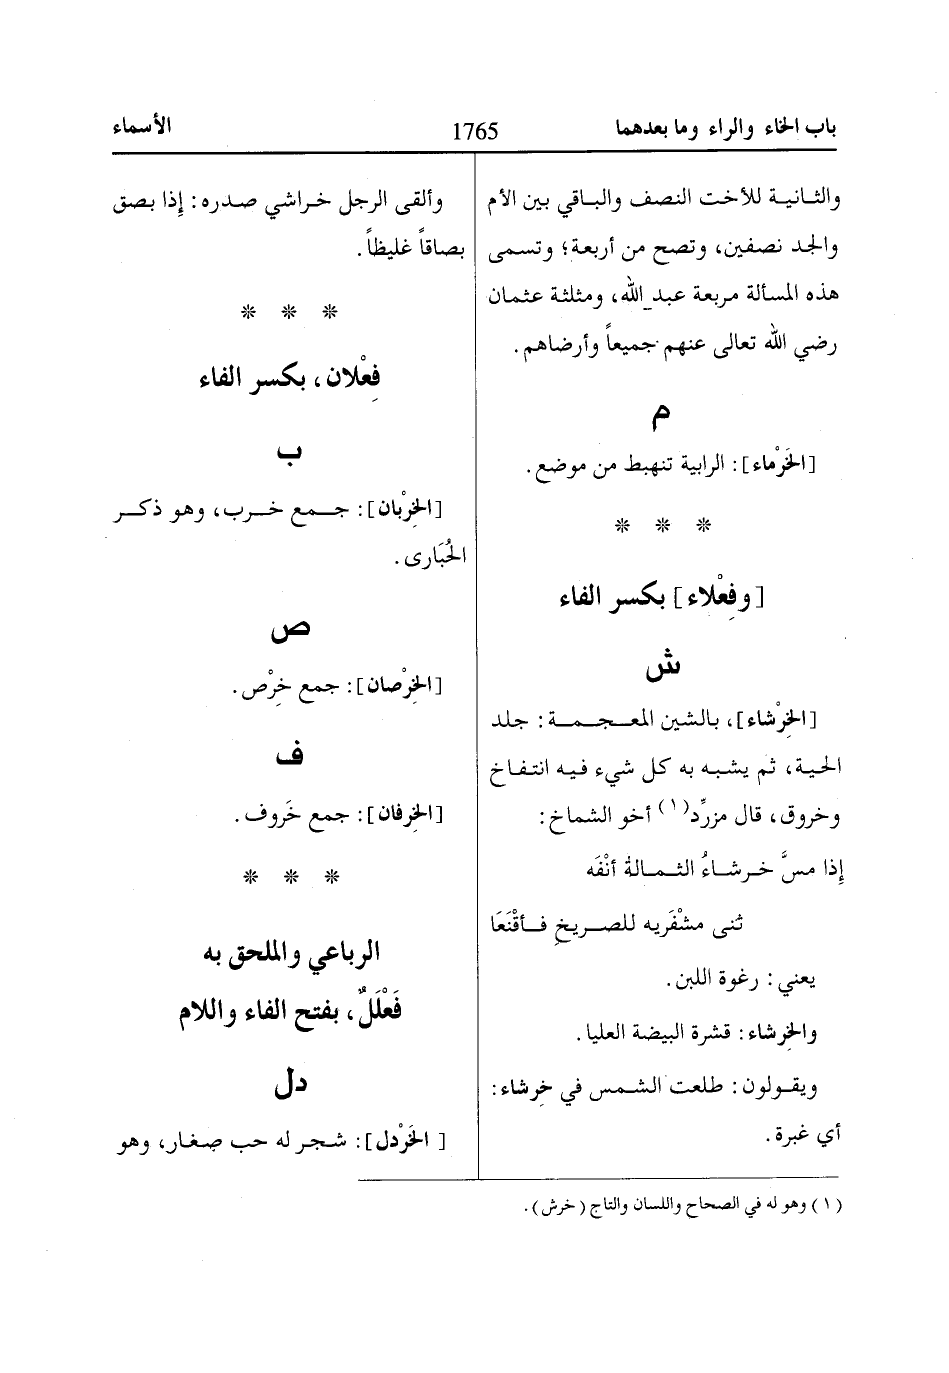 باب الخاء والراء وما بعدهما
1765
الأسماء
والثانية للأخت النصف والباقي بين الأم
والجد نصفين، وتصح من أربعة؛ وتسمى
هذه المسألة مربعة عبد الله، ومثلثة عثمان
رضي الله تعالى عنهم جميعاً وأرضاهم.
م
[الخَرْماء]: الرابية تنهبط من موضع.
* * *
[وفِعْلاء] بكسر الفاء
ش
[الخِرْشاء]، بالشين المعجمة: جلد
الحية، ثم يشبه به كل شيء فيه انتفاخ
وخروق، قال مزرِّد(١) أخو الشماخ:
إذا مسَّ خرشاءُ الثمالة أنْفَه
ثنى مشْفَريه للصريخِ فأقْنَعَا
يعني: رغوة اللبن.
والخِرشاء: قشرة البيضة العليا.
ويقولون: طلعت الشمس في خِرشاء:
أي غبرة.
وألقى الرجل خراشي صدره: إذا بصق
بصاقاً غليظاً.
* * *
فِعْلان، بكسر الفاء
ب
[الخِرْبان]: جمع خرب، وهو ذكر
الحُبَارى.
ص
[الخِرْصان]: جمع خِرْص.
ف
[الخِرفان]: جمع خَروف.
* * *
الرباعي والملحق به
فَعْلَلٌ، بفتح الفاء واللام
دل
[الخَرْدل]: شجر له حب صغار، وهو
(١) وهو له في الصحاح واللسان والتاج (خرش).